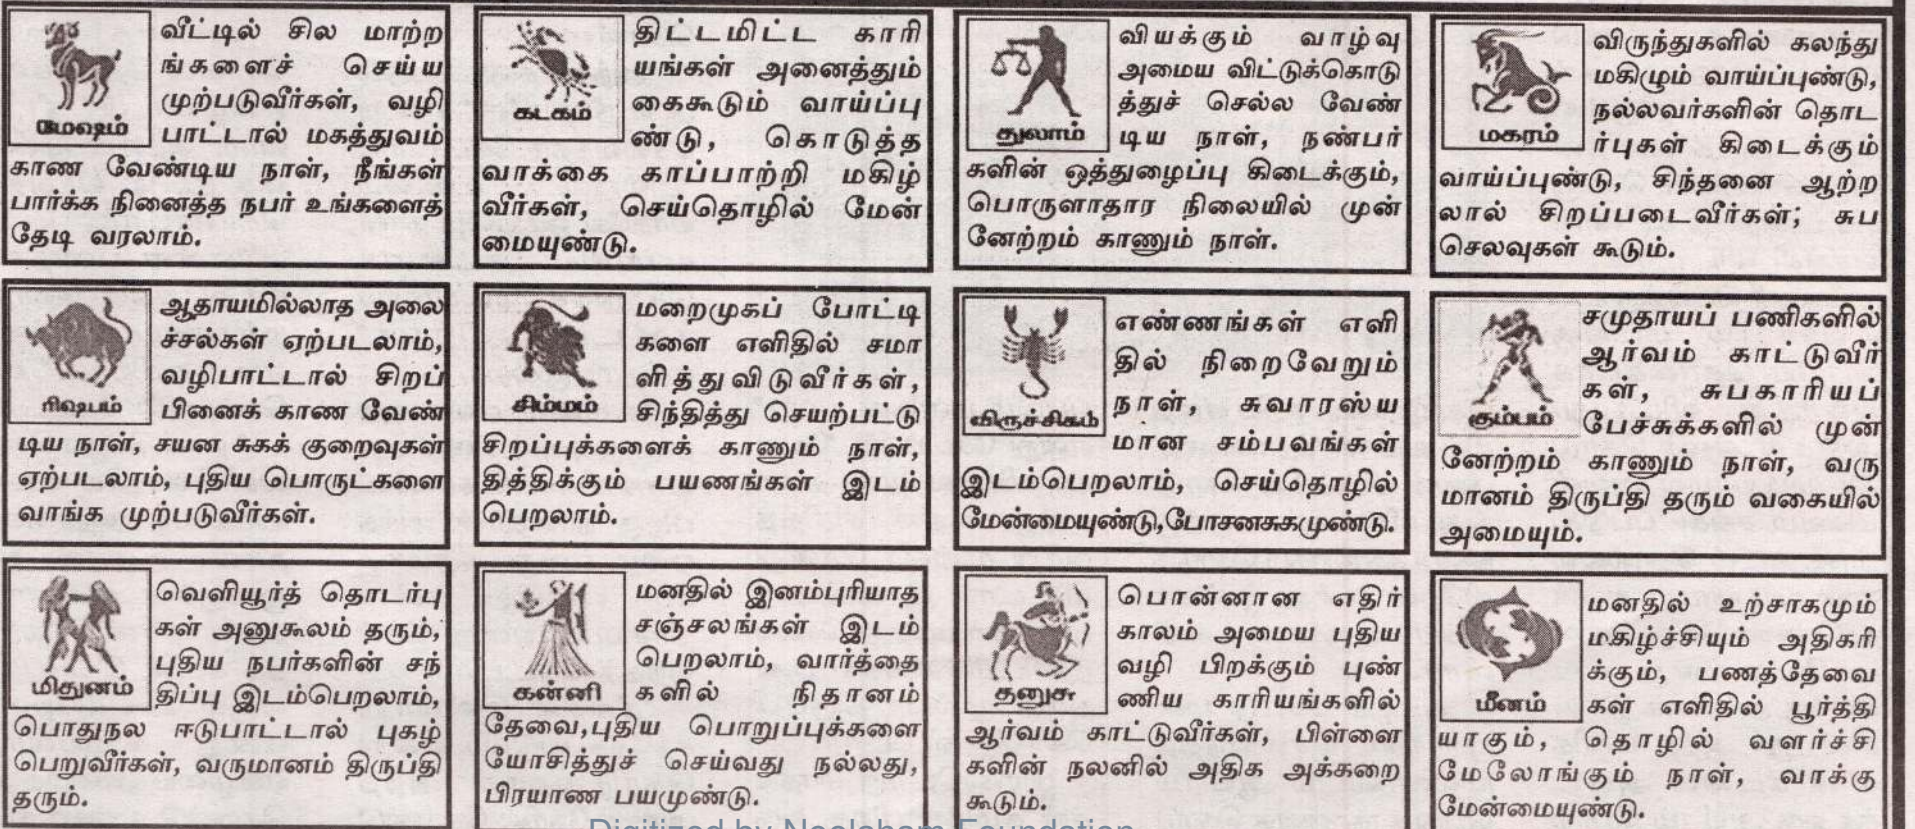 மேஷம்
வீட்டில் சில மாற்ற
ங்களைச் செய்ய
முற்படுவீர்கள், வழி
பாட்டால் மகத்துவம்
காண வேண்டிய நாள், நீங்கள்
பார்க்க நினைத்த நபர் உங்களைத்
தேடி வரலாம்.
ரிஷபம்
ஆதாயமில்லாத அலை
ச்சல்கள் ஏற்படலாம்,
வழிபாட்டால் சிறப்
பினைக் காண வேண்
டிய நாள், சயன சுகக் குறைவுகள்
ஏற்படலாம், புதிய பொருட்களை
வாங்க முற்படுவீர்கள்.
மிதுனம்
வெளியூர்த் தொடர்பு
கள் அனுகூலம் தரும்,
புதிய நபர்களின் சந்
திப்பு இடம்பெறலாம்,
பொதுநல ஈடுபாட்டால் புகழ்
பெறுவீர்கள், வருமானம் திருப்தி
தரும்.
கடகம்
திட்டமிட்ட காரி
யங்கள் அனைத்தும்
கைகூடும் வாய்ப்பு
ண்டு, கொடுத்த
வாக்கை காப்பாற்றி மகிழ்
வீர்கள், செய்தொழில் மேன்
மையுண்டு.
சிம்மம்
மறைமுகப் போட்டி
களை எளிதில் சமா
ளித்துவிடுவீர்கள்,
சிந்தித்து செயற்பட்டு
சிறப்புக்களைக் காணும் நாள்,
தித்திக்கும் பயணங்கள் இடம்
பெறலாம்.
கன்னி
மனதில் இனம்புரியாத
சஞ்சலங்கள் இடம்
பெறலாம், வார்த்தை
களில் நிதானம்
தேவை,புதிய பொறுப்புக்களை
யோசித்துச் செய்வது நல்லது,
பிரயாண பயமுண்டு.
துலாம்
வியக்கும் வாழ்வு
அமைய விட்டுக்கொடு
த்துச் செல்ல வேண்
டிய நாள், நண்பர்
களின் ஒத்துழைப்பு கிடைக்கும்,
பொருளாதார நிலையில் முன்
னேற்றம் காணும் நாள்.
விருச்சிகம்
எண்ணங்கள் எளி
தில் நிறைவேறும்
நாள், சுவாரஸ்ய
மான சம்பவங்கள்
இடம்பெறலாம், செய்தொழில்
மேன்மையுண்டு,போசனசுகமுண்டு.
தனுசு
பொன்னான எதிர்
காலம் அமைய புதிய
வழி பிறக்கும் புண்
ணிய காரியங்களில்
ஆர்வம் காட்டுவீர்கள், பிள்ளை
களின் நலனில் அதிக அக்கறை
கூடும்.
மகரம்
விருந்துகளில் கலந்து
மகிழும் வாய்ப்புண்டு,
நல்லவர்களின் தொட
ர்புகள் கிடைக்கும்
வாய்ப்புண்டு, சிந்தனை ஆற்ற
லால் சிறப்படைவீர்கள்; சுப
செலவுகள் கூடும்.
கும்பம்
சமுதாயப் பணிகளில்
ஆர்வம் காட்டுவீர்
கள், சுபகாரியப்
பேச்சுக்களில் முன்
னேற்றம் காணும் நாள், வரு
மானம் திருப்தி தரும் வகையில்
அமையும்.
மீனம்
மனதில் உற்சாகமும்
மகிழ்ச்சியும் அதிகரி
க்கும், பணத்தேவை
கள் எளிதில் பூர்த்தி
யாகும், தொழில் வளர்ச்சி
மேலோங்கும் நாள், வாக்கு
மேன்மையுண்டு.
Digitized by Noolaham Foundation